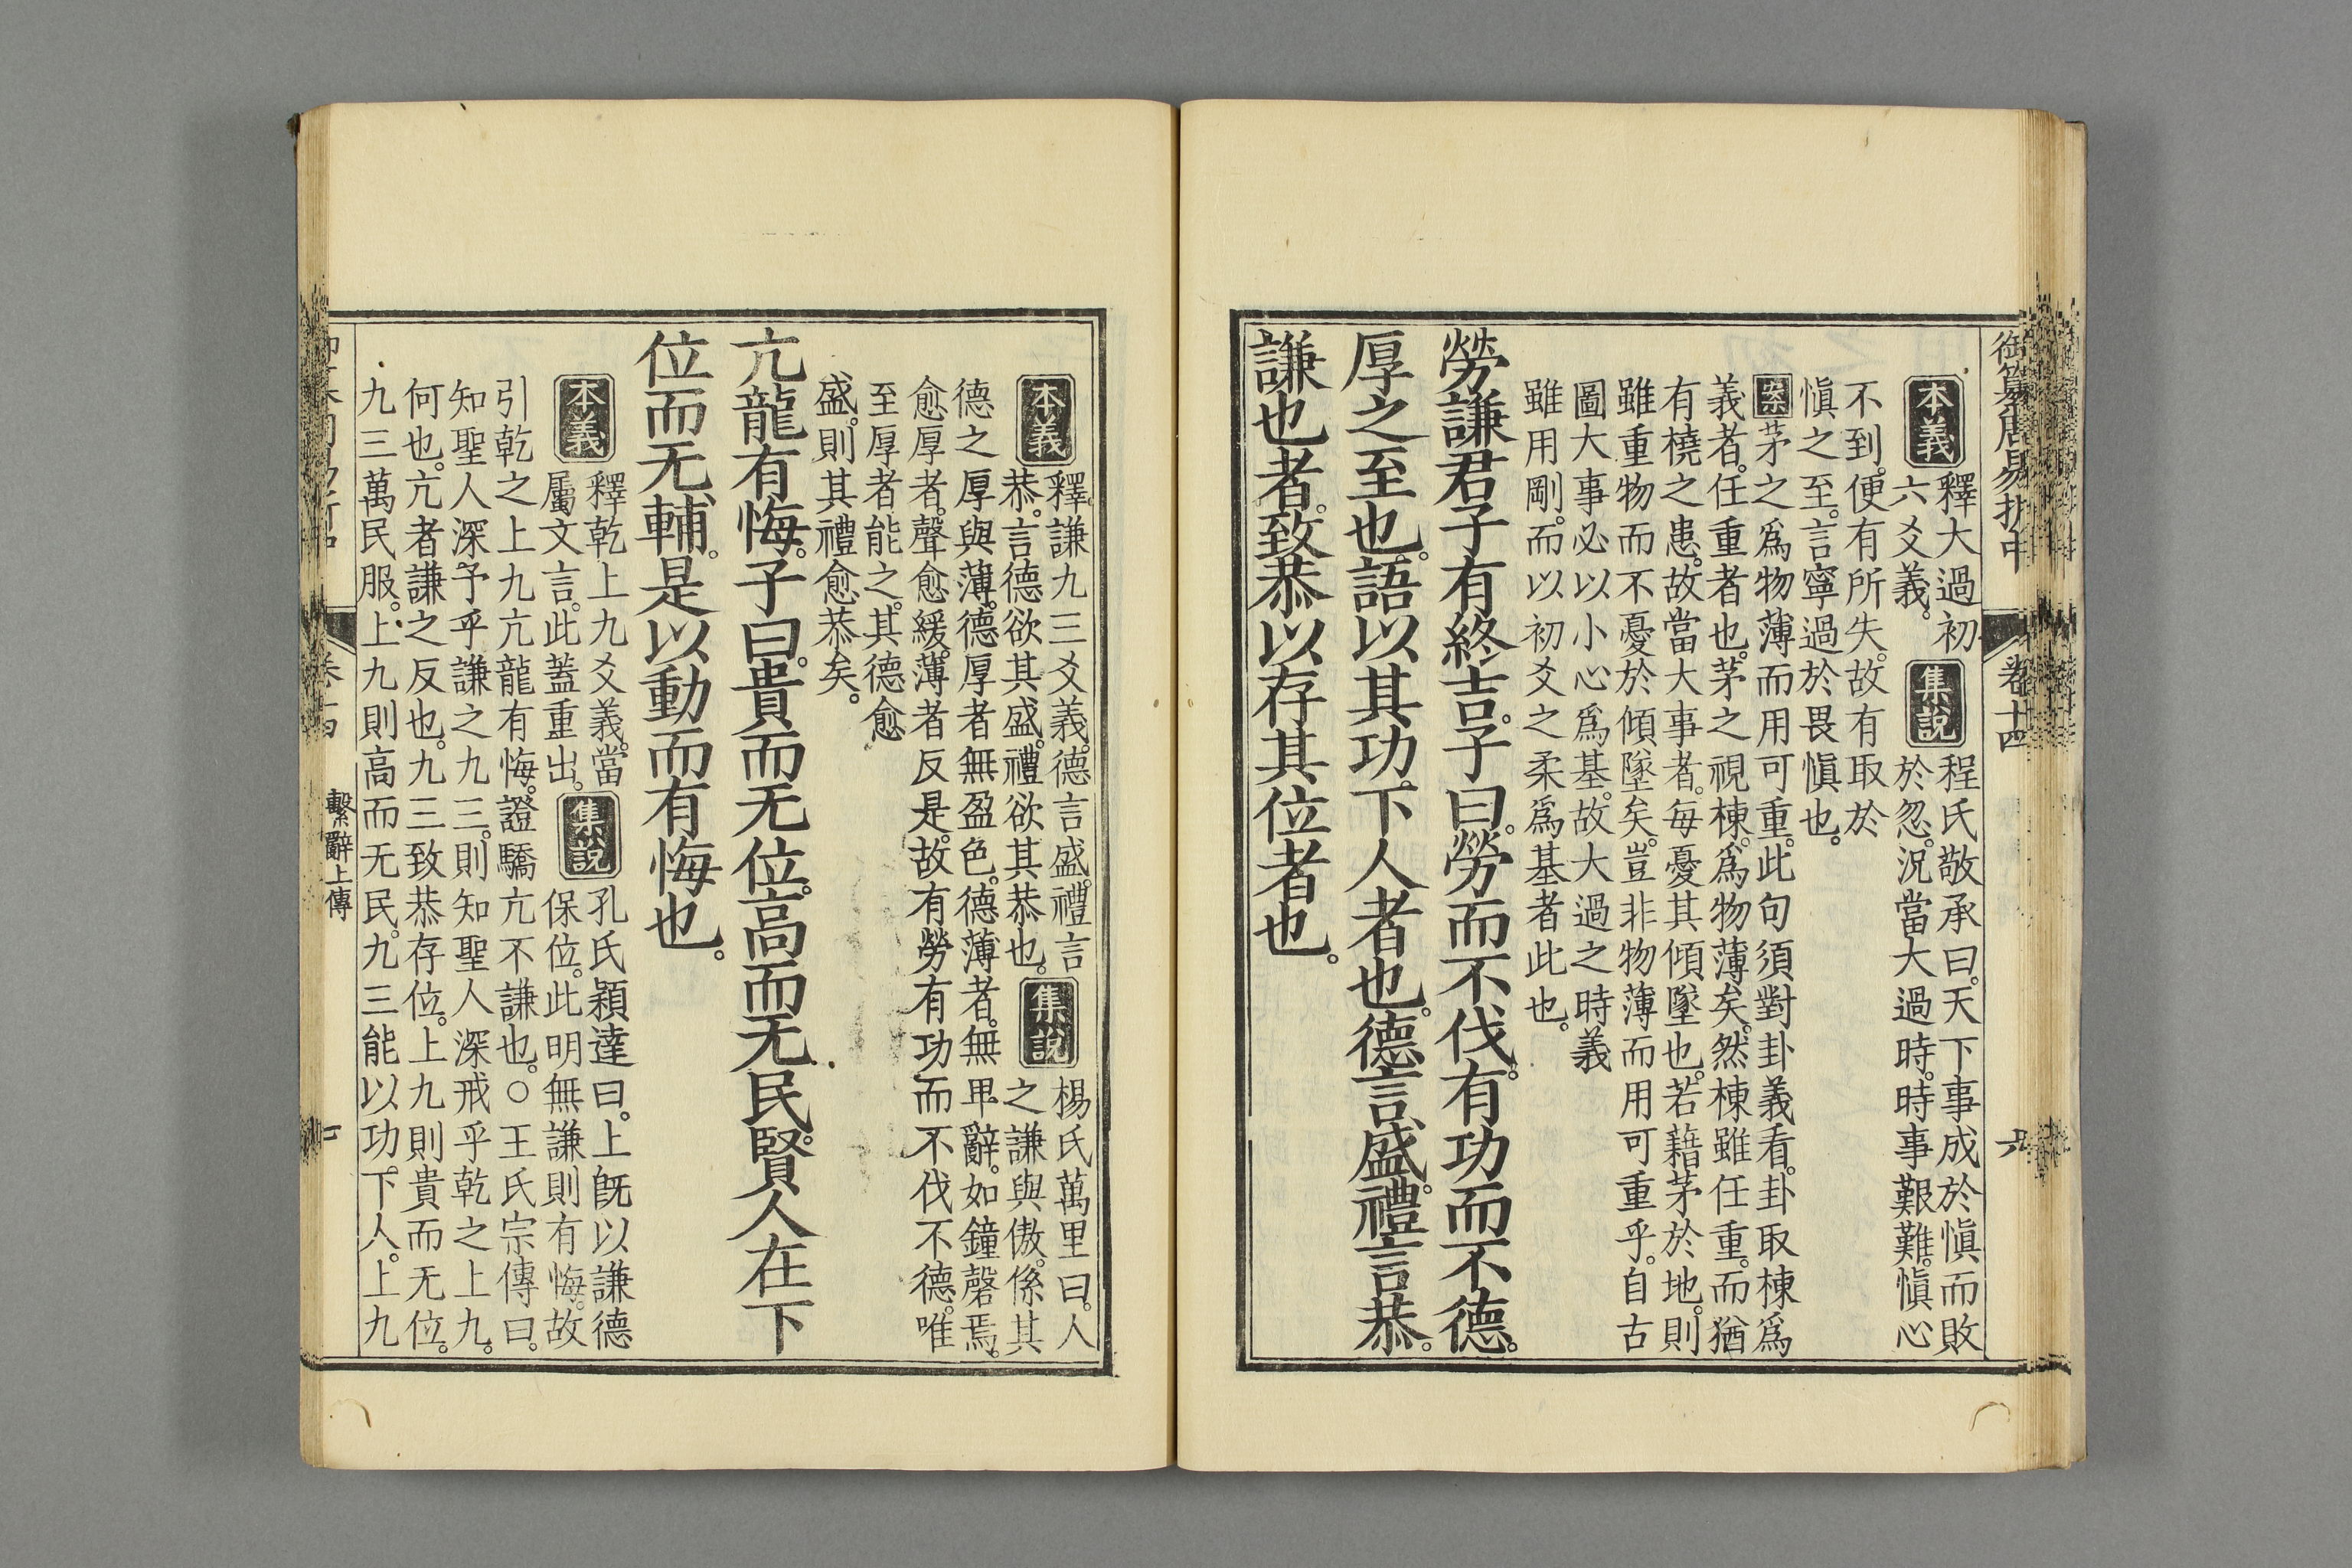 御纂周易折中 卷十四 六
本義 釋大過初 集說 程氏敬承曰。天下事成於愼而敗
六爻義。 於忽。況當大過時。時事艱難。愼心
不到。便有所失。故有取於
愼之至。言寧過於畏愼也。
案 茅之爲物薄而用可重。此句須對卦義看。卦取棟爲
義者。任重者也。茅之視棟。爲物薄矣。然棟雖任重。而猶
有橈之患。故當大事者。每憂其傾墜也。若藉茅於地。則
雖重物而不憂於傾墜矣。豈非物薄而用可重乎。自古
圖大事必以小心爲基。故大過之時義
雖用剛。而以初爻之柔爲基者此也。
勞謙君子有終吉。子曰。勞而不伐。有功而不德。
厚之至也。語以其功。下人者也。德言盛。禮言恭。
謙也者。致恭以存其位者也。
本義 釋謙九三爻義。德言盛。禮言 集說 楊氏萬里曰。人
恭。言德欲其盛。禮欲其恭也。 之謙與傲。係其
德之厚與薄。德厚者無盈色。德薄者。無卑辭。如鐘磬焉。
愈厚者。聲愈緩。薄者反是。故有勞有功而不伐不德。唯
至厚者能之。其德愈
盛。則其禮愈恭矣。
亢龍有悔。子曰。貴而无位。高而无民。賢人在下
位而无輔。是以動而有悔也。
本義 釋乾上九爻義。當 集說 孔氏穎達曰。上旣以謙德
屬文言。此蓋重出。 保位。此明無謙則有悔。故
引乾之上九亢龍有悔。證驕亢不謙也。○王氏宗傳曰。
知聖人深予乎謙之九三。則知聖人深戒乎乾之上九。
何也。亢者謙之反也。九三致恭存位。上九則貴而无位。
九三萬民服。上九則高而无民。九三能以功下人。上九
繫辭上傳